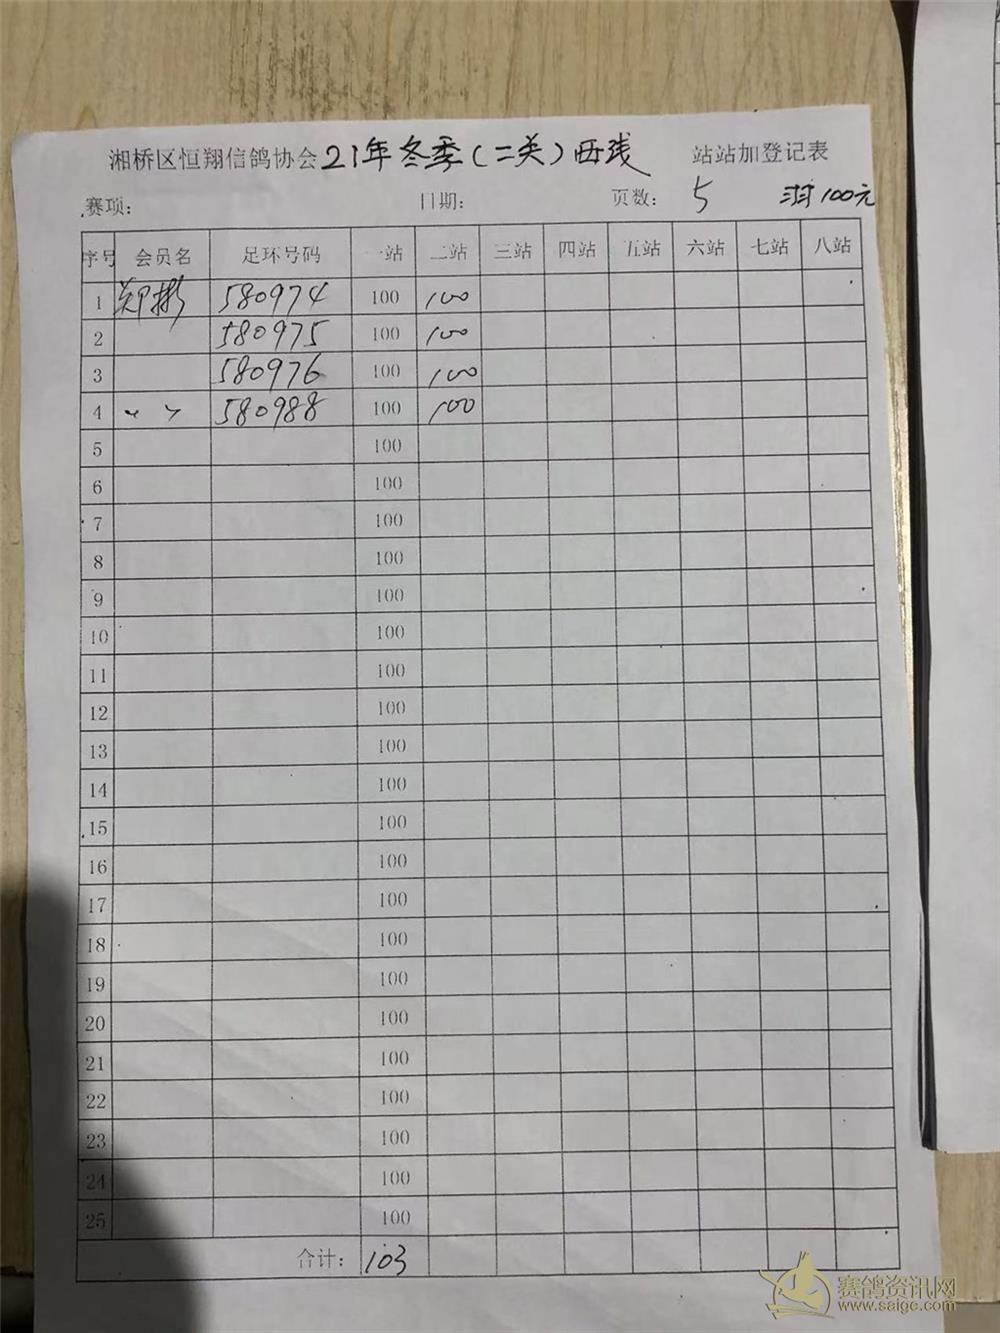 湘桥区恒翔信鸽协会21年冬季(二关)西线 站站加登记表
赛项: 日期: 页数: 5 羽100元
序号 会员名 足环号码 一站 二站 三站 四站 五站 六站 七站 八站
1 郑彬 580974 100 100
2 580975 100 100
3 580976 100 100
4 〃 580988 100 100
5 100
6 100
7 100
8 100
9 100
10 100
11 100
12 100
13 100
14 100
15 100
16 100
17 100
18 100
19 100
20 100
21 100
22 100
23 100
24 100
25 100
合计: 103
赛鸽资讯网
www.saige.com